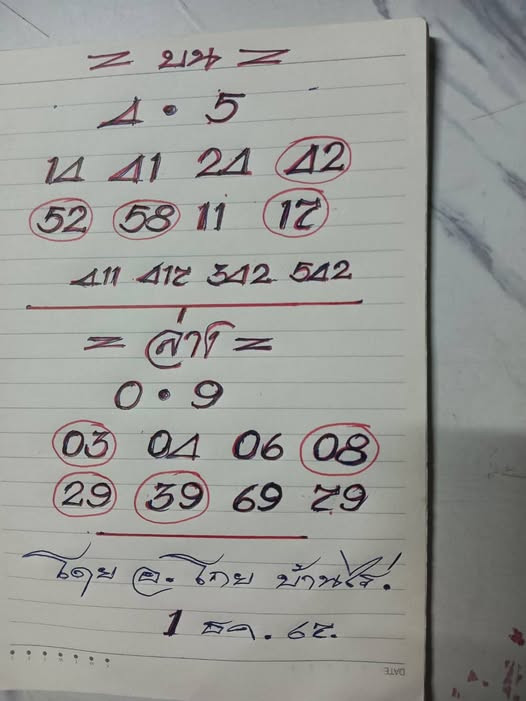 = บน =
4 • 5
14 41 24 42
52 58 11 17
411 417 342 542
= ล่าง =
0 • 9
03 04 06 08
29 39 69 79
โดย อ. โกย บ้านไร่.
1 ธค. 67.
DATE